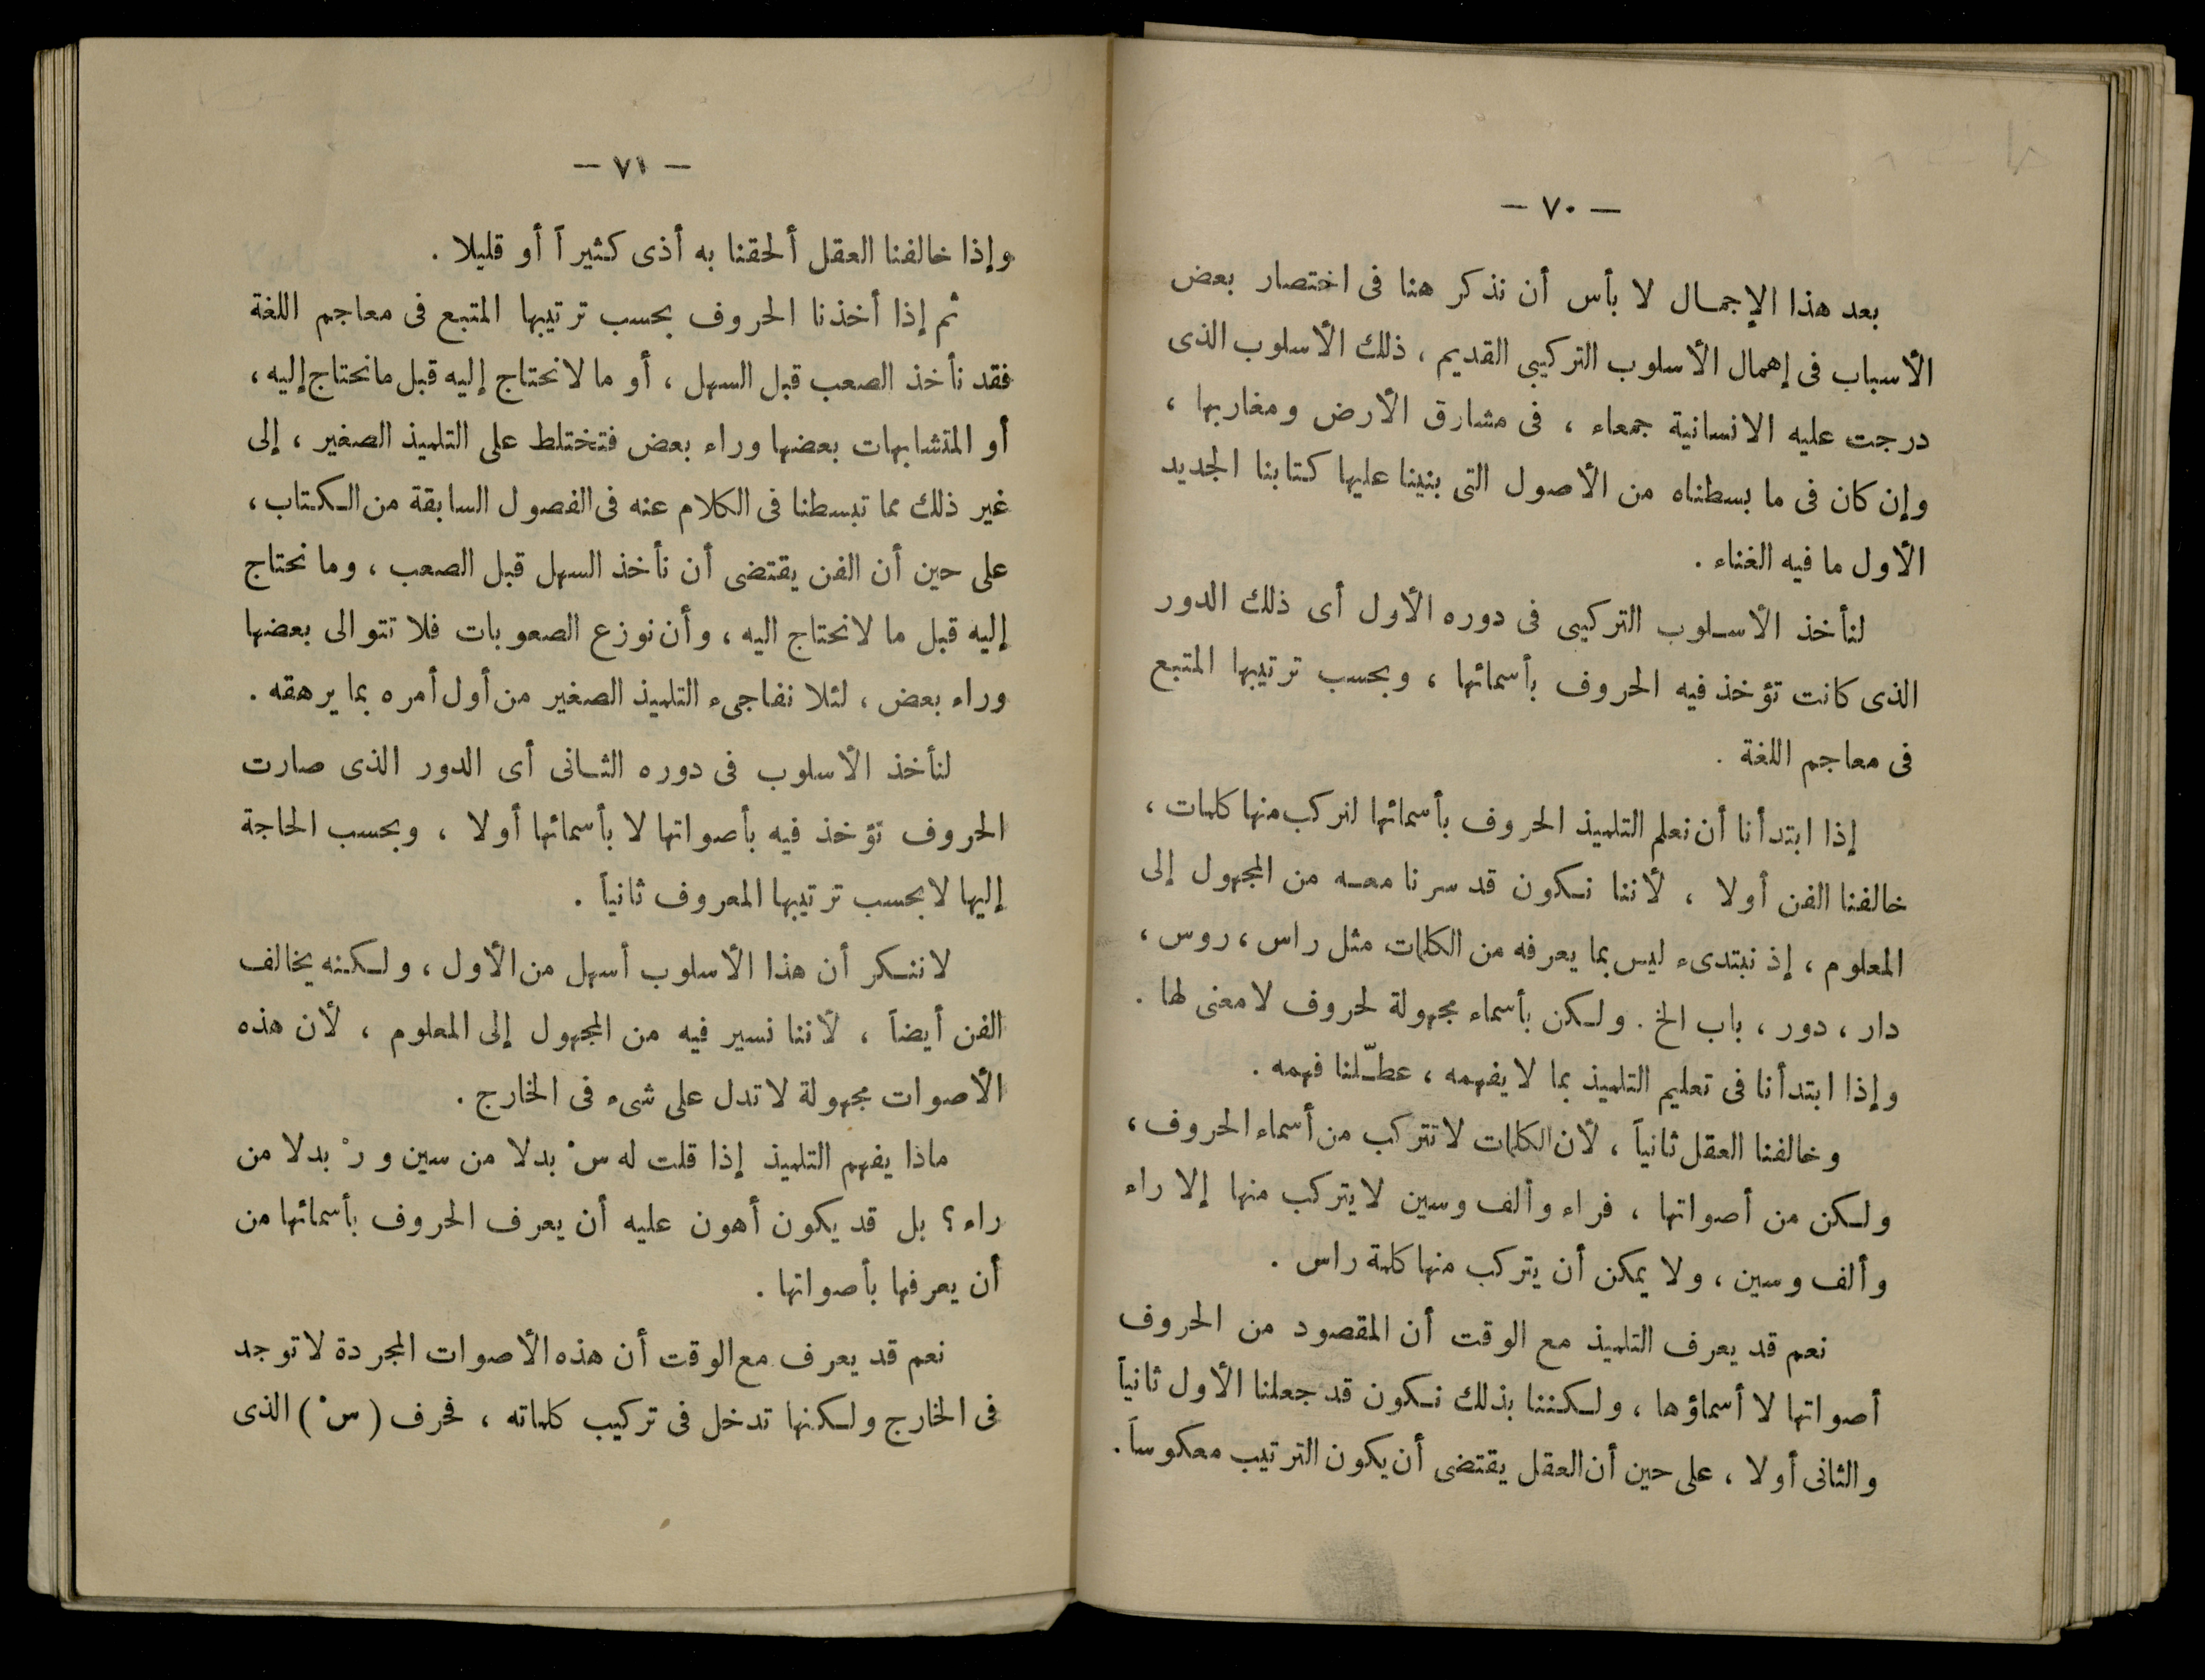 — ٧٠ —
بعد هذا الإجمال لا بأس أن نذكر هنا فى اختصار بعض
الأسباب فى إهمال الأسلوب التركيبى القديم ، ذلك الأسلوب الذى
درجت عليه الانسانية جمعاء ، فى مشارق الأرض ومغاربها ،
وإن كان فى ما بسطناه من الأصول التى بنينا عليها كتابنا الجديد
الأول ما فيه الغناء .
لنأخذ الأسلوب التركيبى فى دوره الأول أى ذلك الدور
الذى كانت تؤخذ فيه الحروف بأسمائها ، وبحسب ترتيبها المتبع
فى معاجم اللغة .
إذا ابتدأنا أن نعلم التلميذ الحروف بأسمائها لنركب منها كلمات ،
خالفنا الفن أولا ، لأننا نكون قد سرنا معه من المجهول إلى
المعلوم ، إذ نبتدىء ليس بما يعرفه من الكلمات مثل راس ، روس ،
دار ، دور ، باب الخ . ولكن بأسماء مجهولة لحروف لا معنى لها .
وإذا ابتدأنا فى تعليم التلميذ بما لا يفهمه ، عطّلنا فهمه .
وخالفنا العقل ثانياً ، لأن الكلمات لا تتركب من أسماء الحروف ،
ولكن من أصواتها ، فراء وألف وسين لا يتركب منها إلا راء
وألف وسين ، ولا يمكن أن يتركب منها كلمة راس .
نعم قد يعرف التلميذ مع الوقت أن المقصود من الحروف
أصواتها لا أسماؤها ، ولكننا بذلك نكون قد جعلنا الأول ثانياً
والثانى أولا ، على حين أن العقل يقتضى أن يكون الترتيب معكوساً .
— ٧١ —
وإذا خالفنا العقل ألحقنا به أذى كثيراً أو قليلا .
ثم إذا أخذنا الحروف بحسب ترتيبها المتبع فى معاجم اللغة
فقد نأخذ الصعب قبل السهل ، أو ما لا نحتاج إليه قبل ما نحتاج إليه ،
أو المتشابهات بعضها وراء بعض فتختلط على التلميذ الصغير ، إلى
غير ذلك مما تبسطنا فى الكلام عنه فى الفصول السابقة من الكتاب ،
على حين أن الفن يقتضى أن نأخذ السهل قبل الصعب ، وما نحتاج
إليه قبل ما لا نحتاج اليه ، وأن نوزع الصعوبات فلا تتوالى بعضها
وراء بعض ، لئلا نفاجىء التلميذ الصغير من أول أمره بما يرهقه .
لنأخذ الأسلوب فى دوره الثانى أى الدور الذى صارت
الحروف تؤخذ فيه بأصواتها لا بأسمائها أولا ، وبحسب الحاجة
إليها لا بحسب ترتيبها المعروف ثانياً .
لا ننكر أن هذا الأسلوب أسهل من الأول ، ولكنه يخالف
الفن أيضاً ، لأننا نسير فيه من المجهول إلى المعلوم ، لأن هذه
الأصوات مجهولة لا تدل على شىء فى الخارج .
ماذا يفهم التلميذ إذا قلت له سْ بدلا من سين و رْ بدلا من
راء ؟ بل قد يكون أهون عليه أن يعرف الحروف بأسمائها من
أن يعرفها بأصواتها .
نعم قد يعرف مع الوقت أن هذه الأصوات المجردة لا توجد
فى الخارج ولكنها تدخل فى تركيب كلماته ، فحرف ( سْ ) الذى